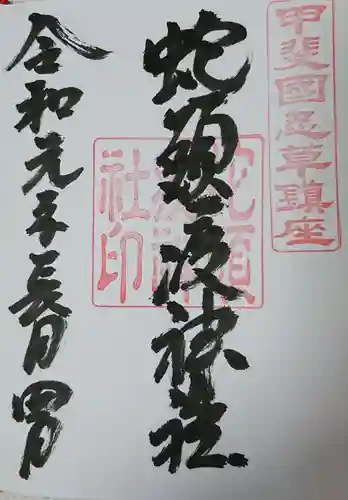 甲斐國忍草鎮座
蛇頭疫神社
蛇頭疫神社印
令和元年五月四日